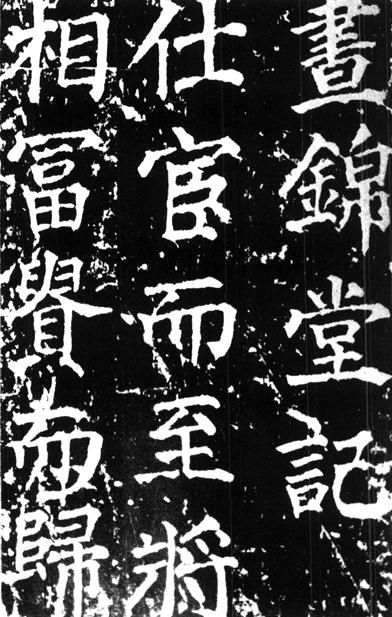 晝錦堂記
仕宦而至將
相冨貴而歸